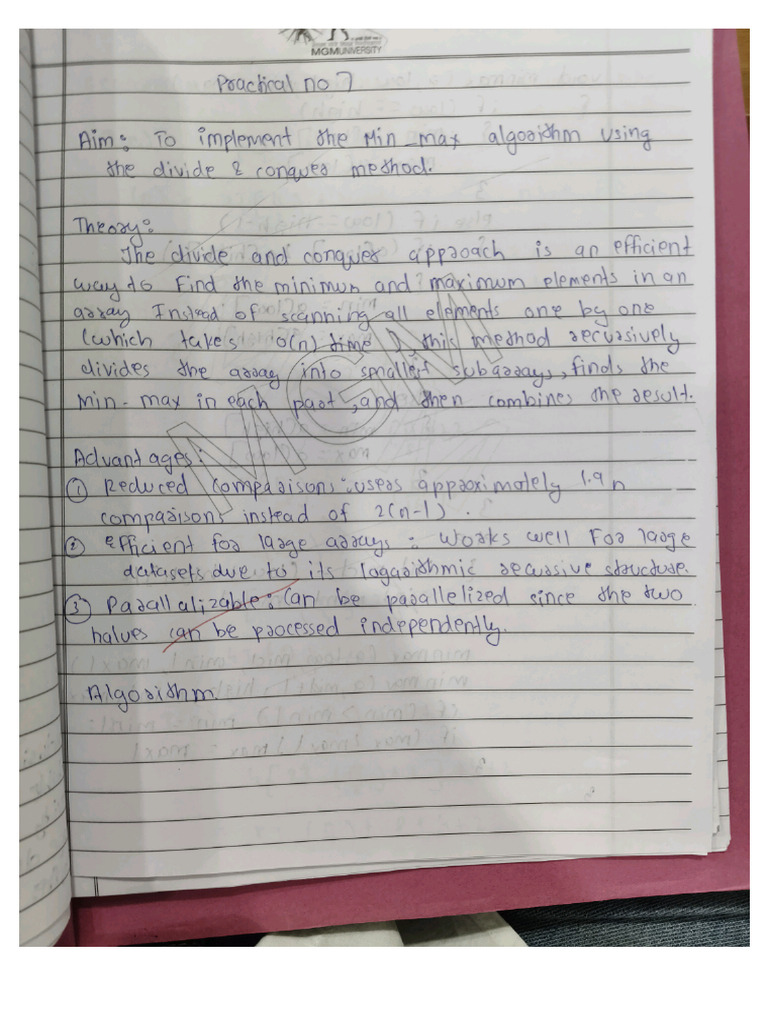 MGMUNIVERSITY
Practical no 7
Aim: To implement the Min_max algorithm using
the divide & conquer method.
Theory:
The divide and conquer approach is an efficient
way to find the minimum and maximum elements in an
array Instead of scanning all elements one by one
(which takes O(n) time), this method recursively
divides the array into smaller subarrays, finds the
min-max in each part, and then combines the result.
MGM
Advantages:
① Reduced comparisons: users approximately 1.9n
comparisons instead of 2(n-1).
② Efficient for large arrays: works well for large
datasets due to its logarithmic recursive structure.
③ Parallalizable: Can be parallelized since the two
halves can be processed independently.
Algorithm.